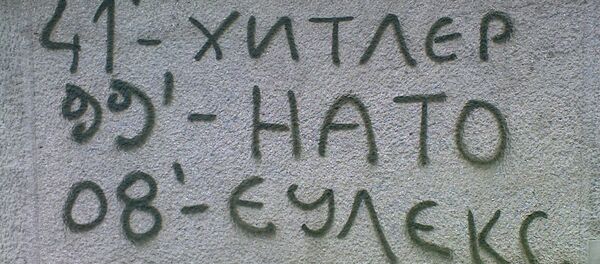 41'- ХИТЛЕР
99'- НАТО
08'- ЕУЛЕКС